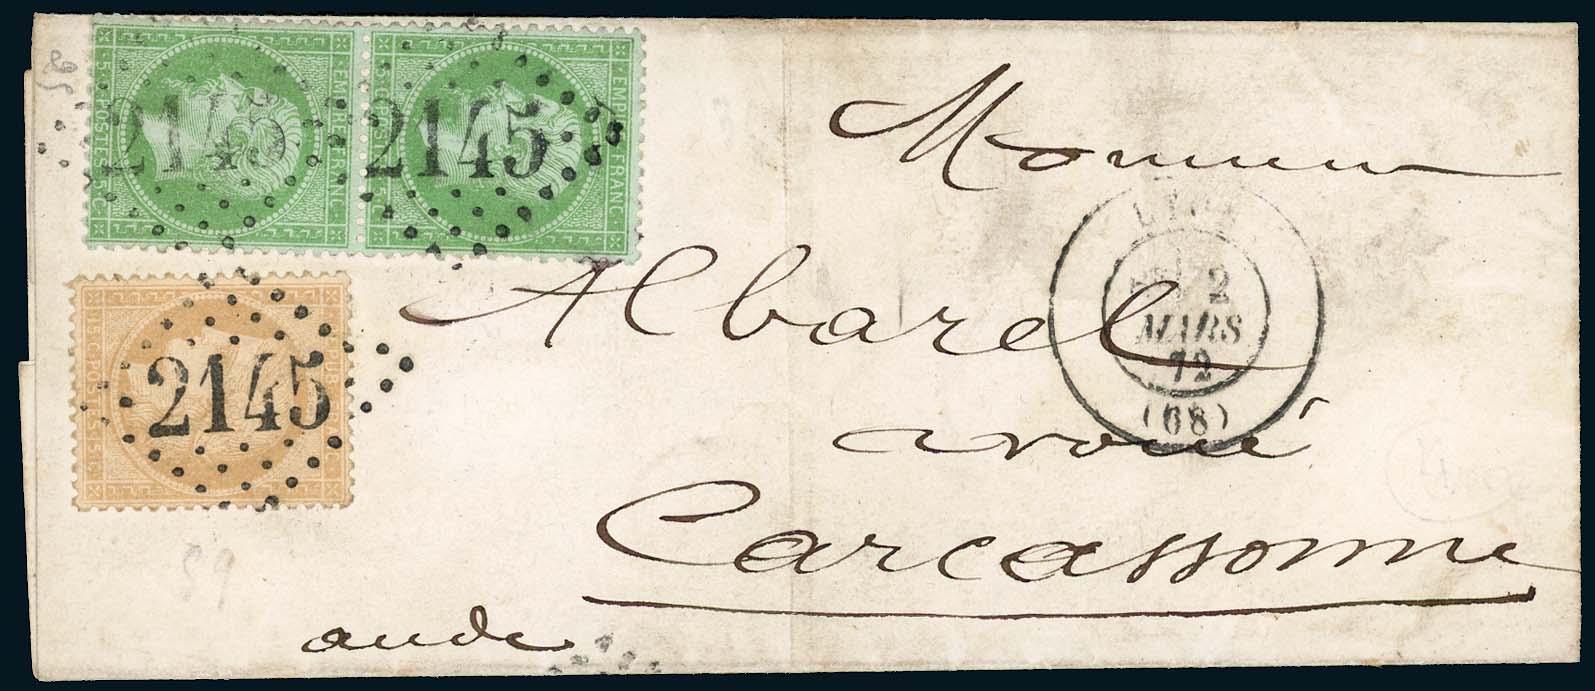 EMPIRE FRANC
5·C·POSTES·5·C
2145
EMPIRE FRANC
5·C·POSTES·5·C
2145
15·C·POSTES·15·C
2145
Monsieur
Albarel
avoué
Carcassonne
aude
LYON
2
MARS
72
(68)